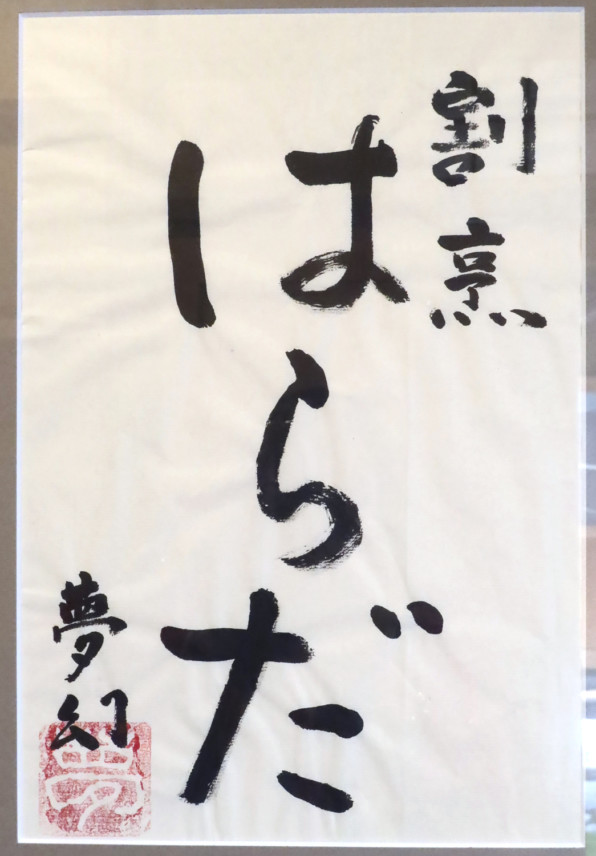 割烹
はらだ
夢幻
夢